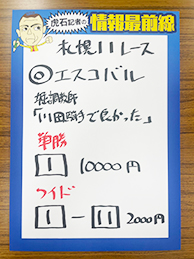 虎石記者の情報最前線
札幌11レース
◎エスコバル
堀調教師
「川田騎手で良かった」
単勝
1 10000円
ワイド
1-11 2000円